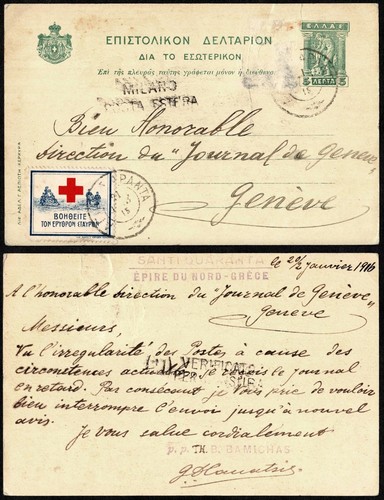 ΕΠΙΣΤΟΛΙΚΟΝ ΔΕΛΤΑΡΙΟΝ
ΔΙΑ ΤΟ ΕΣΩΤΕΡΙΚΟΝ
Ἐπὶ τῆς πλευρᾶς ταύτης γράφεται μόνον ἡ διεύθυνσις.
ΕΛΛΑΣ
5 ΛΕΠΤΑ 5
MILANO
POSTA ESTERA
Bien Honorable
Direction du "Journal de Genève"
Genève
ΒΟΗΘΕΙΤΕ
ΤΟΝ ΕΡΥΘΡΟΝ ΣΤΑΥΡΟΝ
SANTI QUARANTA
ÉPIRE DU NORD-GRÈCE
le 20/2 Janvier 1916
A l'honorable direction du "Journal de Genève"
Genève
Messieurs,
Vu l'irregularité des Postes à cause des
circonstences actuelles je reçois le journal
en retard. Par conséquent je vous prie de vouloir
bien interrompre l'envoi jusqu'à nouvel
avis.
VERIFICATO
PER ESTERA
Je vous salue cordialement
p. p. TH. B. BAMICHAS